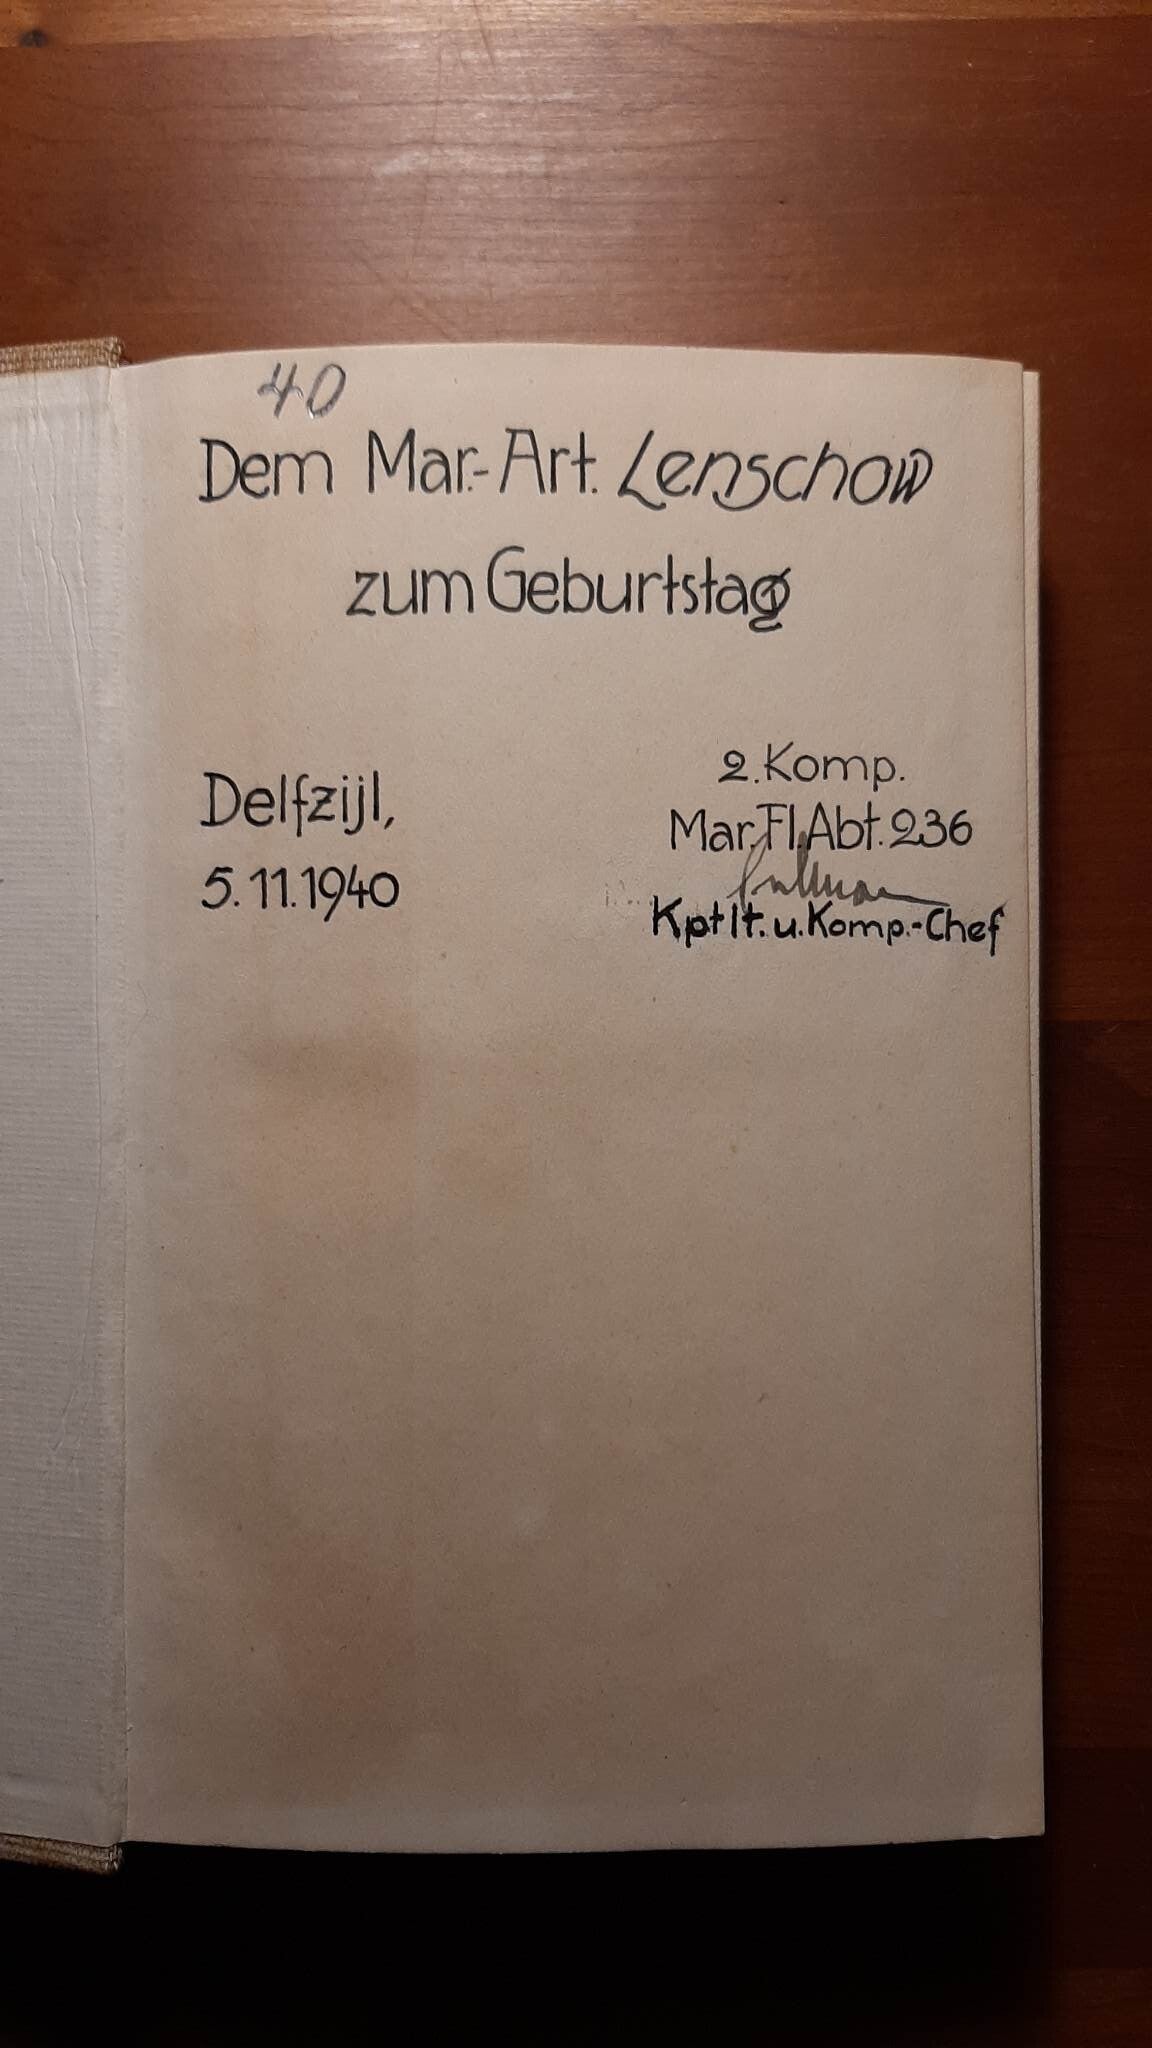 40
Dem Mar.-Art. Lenschow
zum Geburtstag
Delfzijl,
5.11.1940
2. Komp.
Mar. Fl. Abt. 236
Kptlt. u. Komp.-Chef